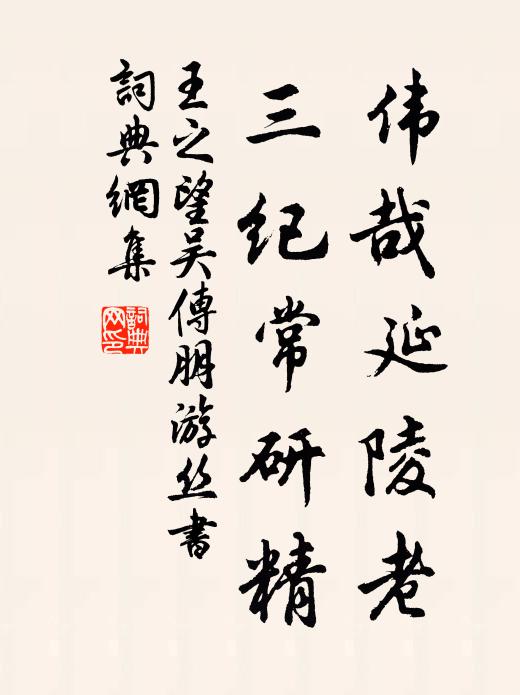 伟哉延陵老
三纪常研精
王之望吴傅朋游丝书
詞典網集
詞典
网印